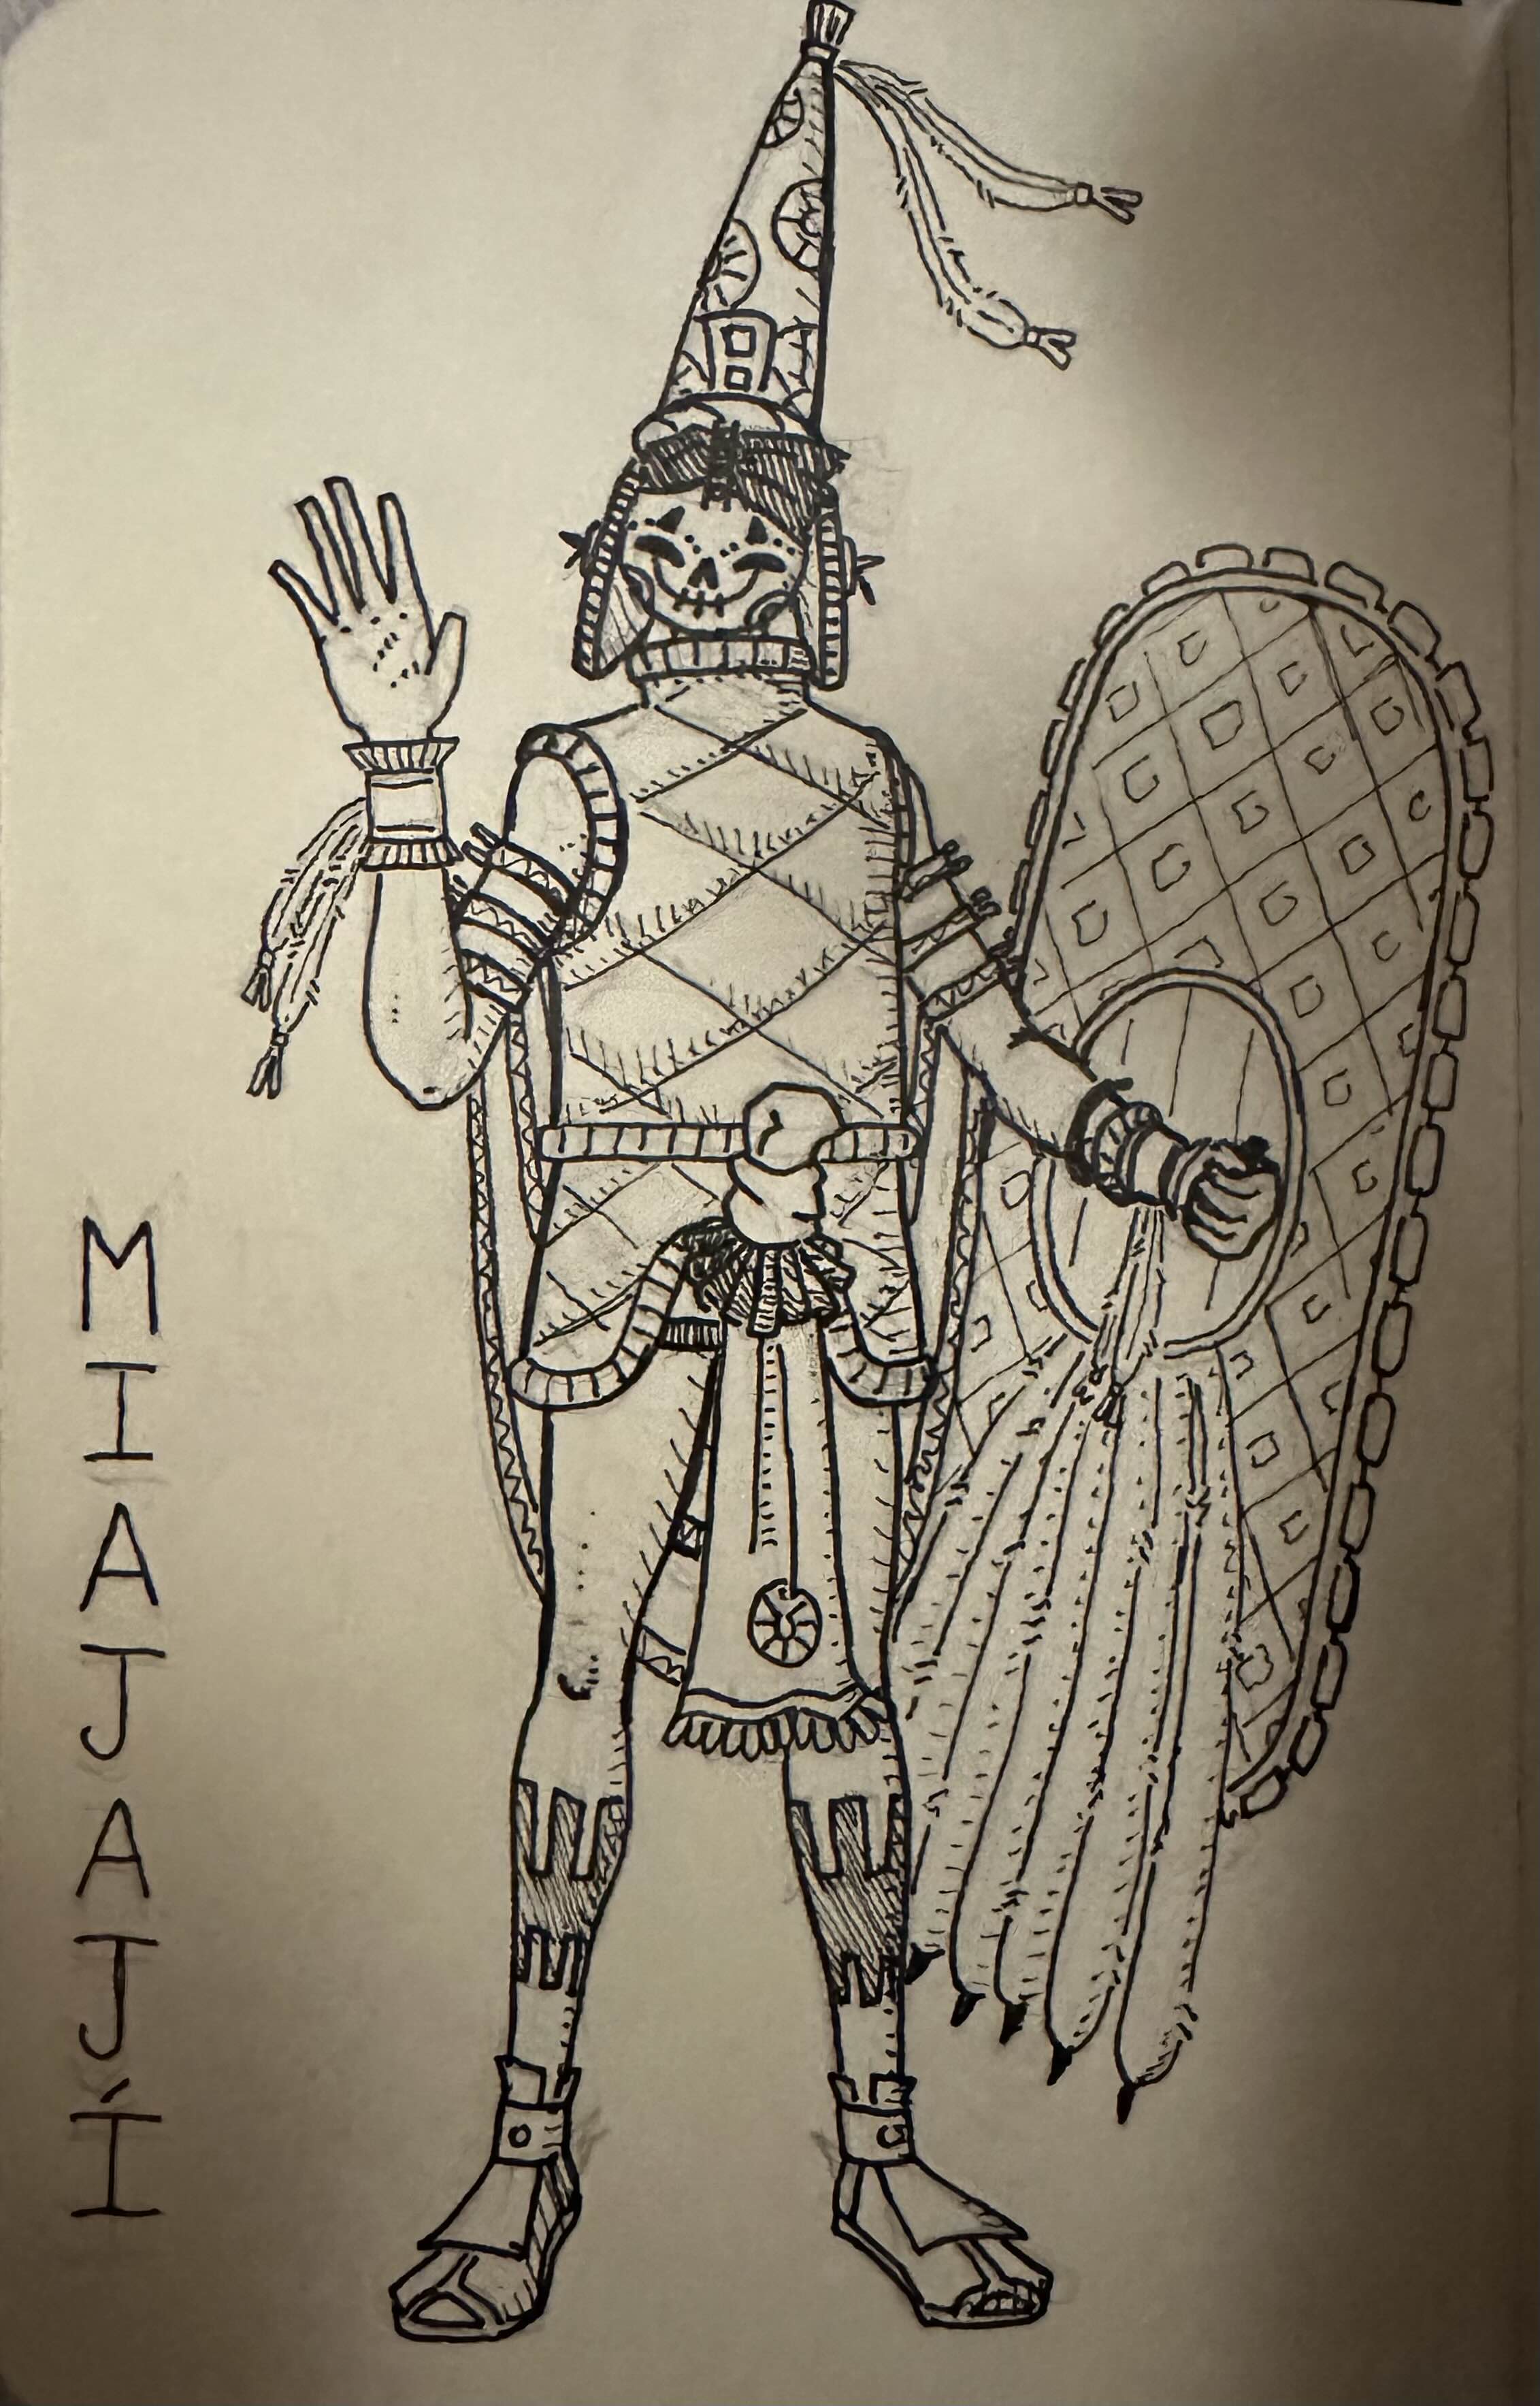 MIAJAJÍ